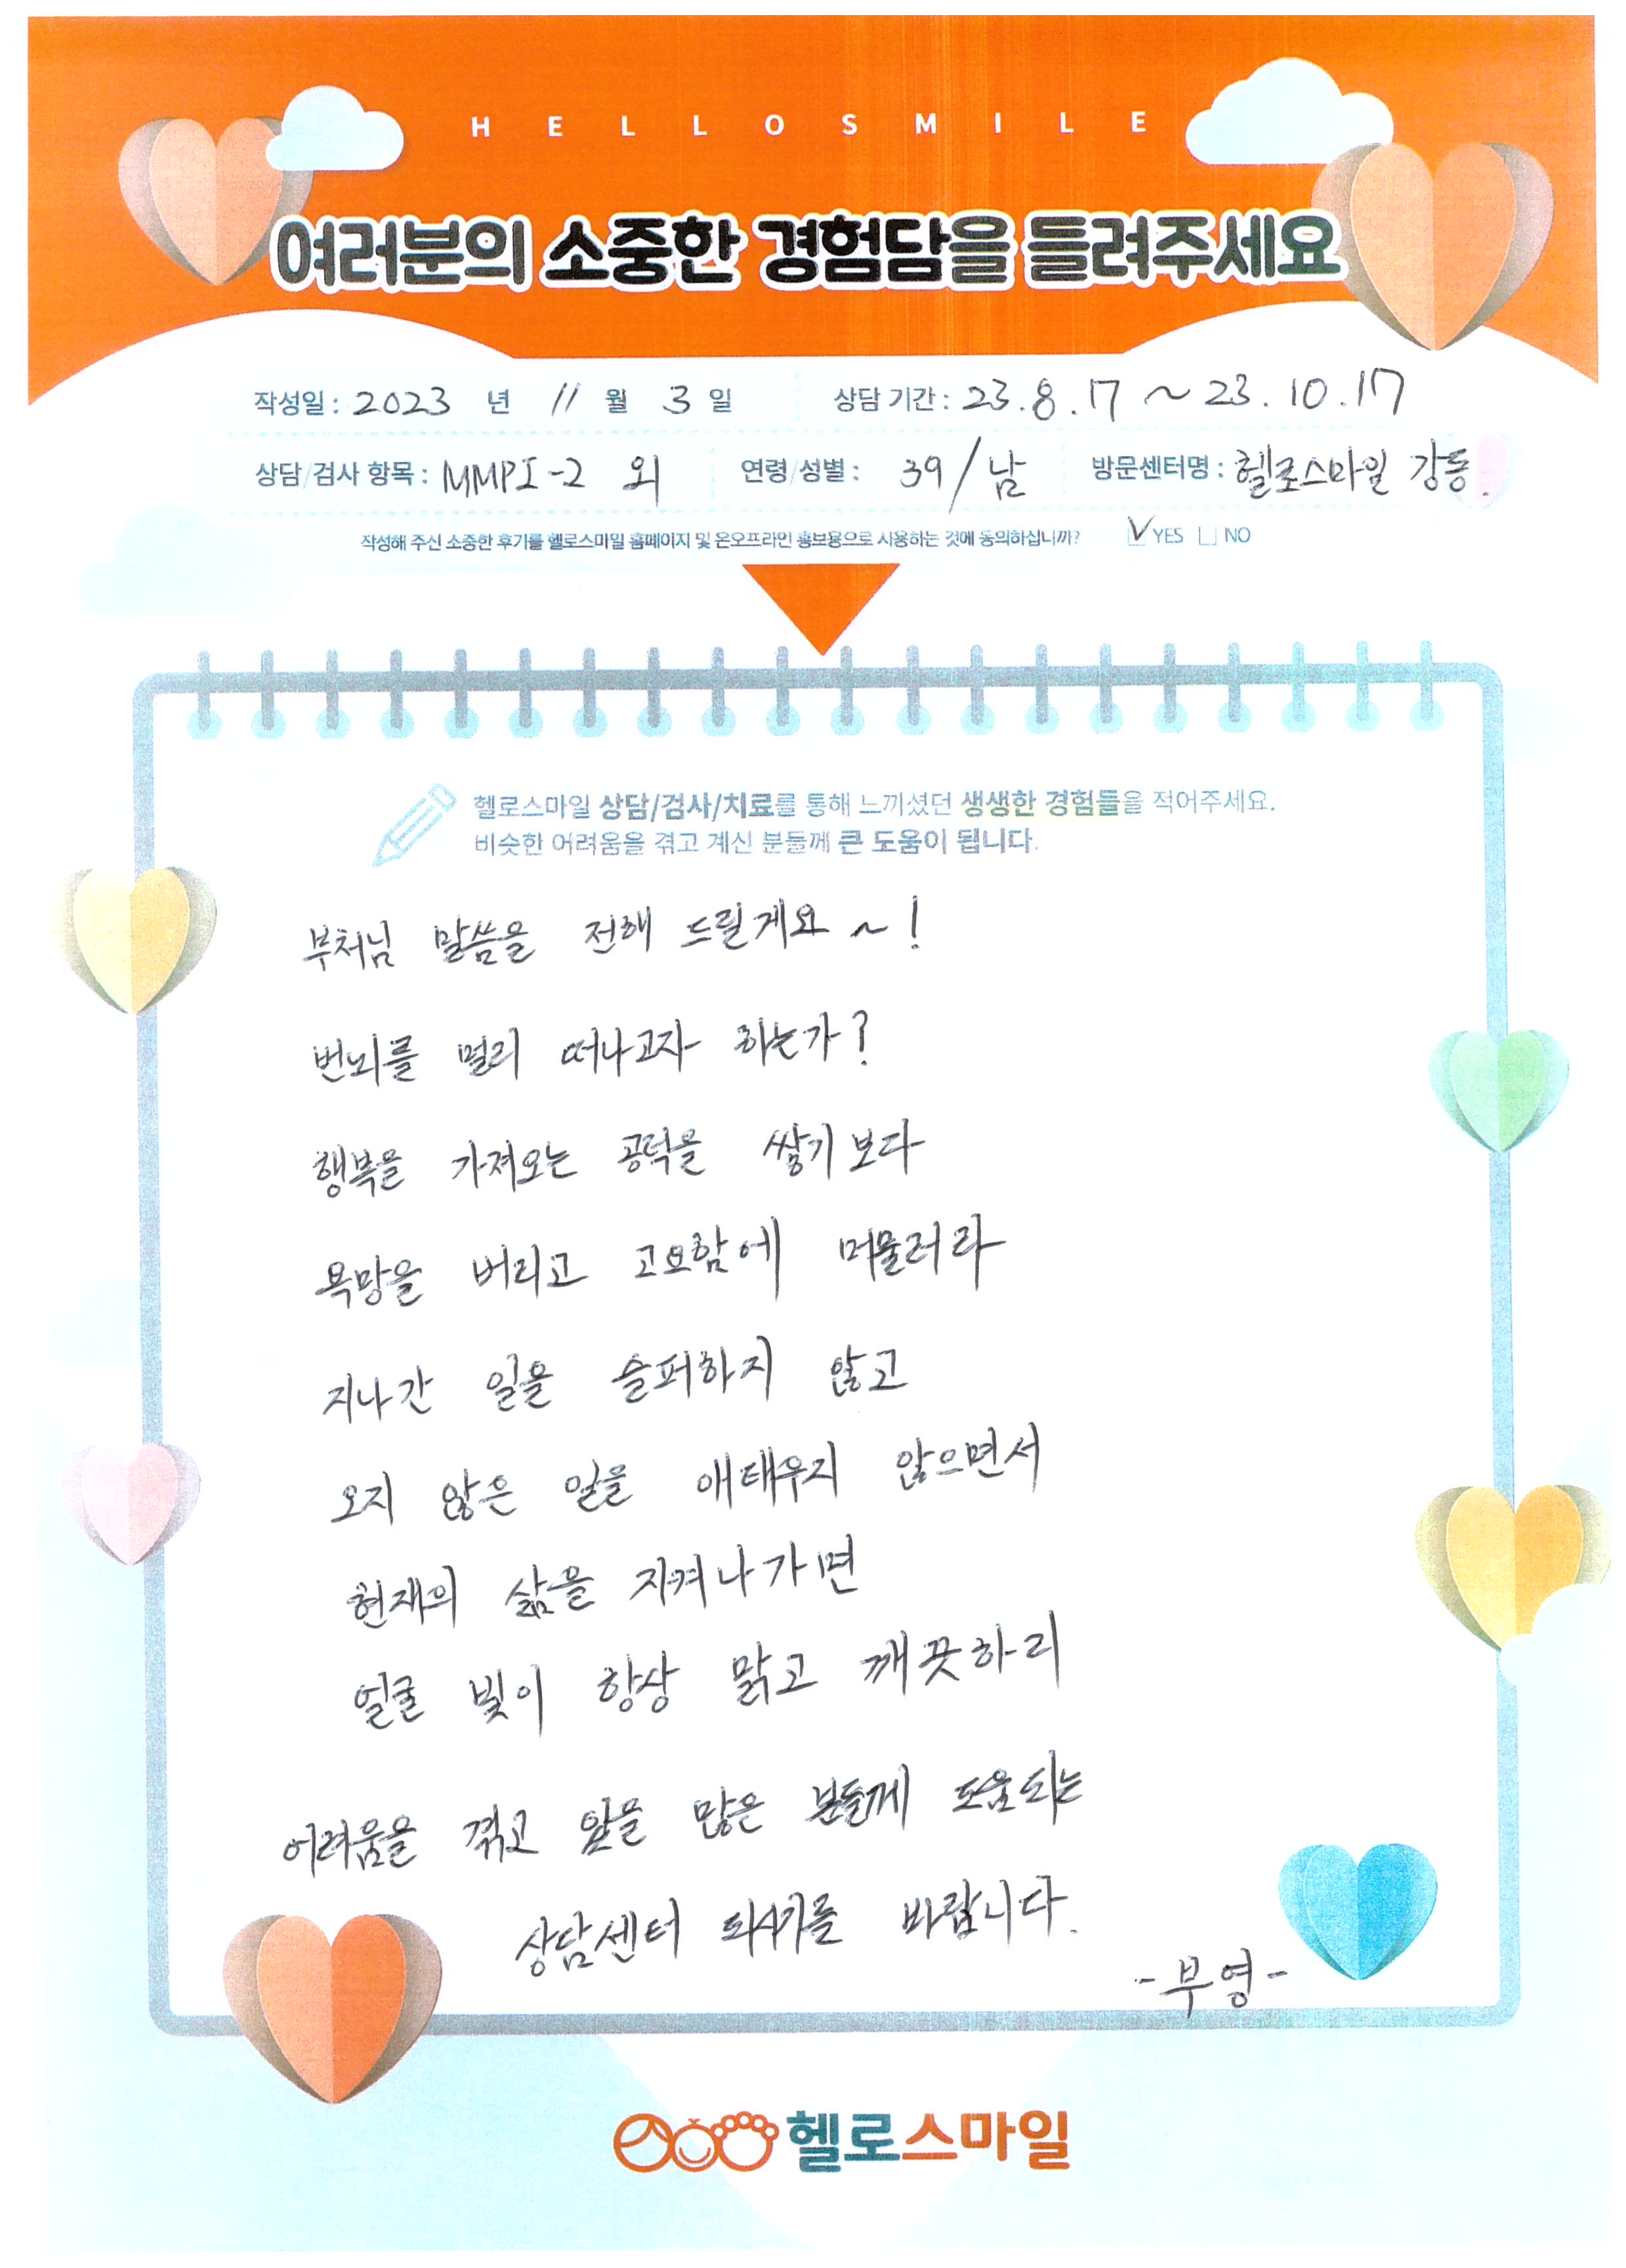 HELLOSMILE
여러분의 소중한 경험담을 들려주세요
작성일 : 2023 년 11 월 3 일 상담 기간 : 23. 8. 17 ~ 23. 10. 17
상담/검사 항목 : MMPI-2 외 연령/성별 : 39 / 남 방문센터명 : 헬로스마일 강동.
작성해 주신 소중한 후기를 헬로스마일 홈페이지 및 온오프라인 홍보용으로 사용하는 것에 동의하십니까? YES NO
헬로스마일 상담/검사/치료를 통해 느끼셨던 생생한 경험들을 적어주세요.
비슷한 어려움을 겪고 계신 분들께 큰 도움이 됩니다.
부처님 말씀을 전해 드릴게요 ~!
번뇌를 멀리 떠나고자 하는가?
행복을 가져오는 공덕을 쌓기 보다
욕망을 버리고 고요함에 머물러라
지나간 일을 슬퍼하지 않고
오지 않은 일을 애태우지 않으면서
현재의 삶을 지켜나가면
얼굴 빛이 항상 맑고 깨끗하리
어려움을 겪고 있을 많은 분들께 도움되는
상담센터 되시기를 바랍니다.
- 부영 -
헬로스마일